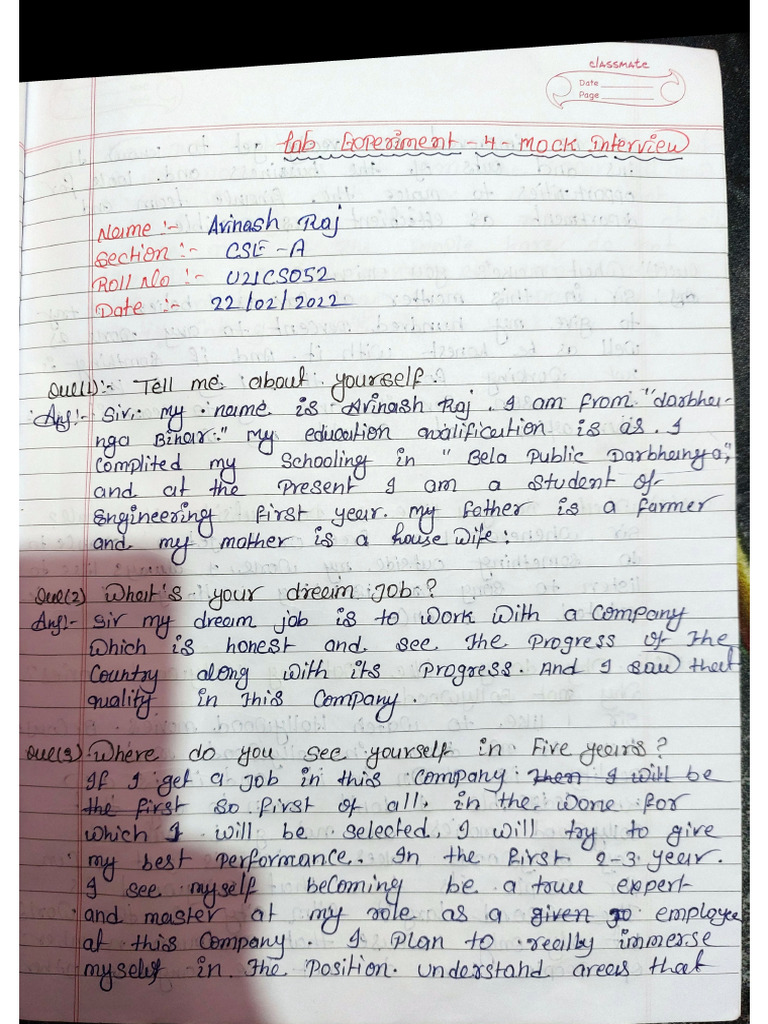 classmate
Date
Page
Lab Experiment - 4 - Mock Interview
Name :- Avinash Raj
Section :- CSE - A
Roll No :- U21CS052
Date :- 22/02/2022
Que(1):- Tell me about yourself.
Ans:- Sir, my name is Avinash Raj. I am from "darbha-
nga Bihar." My education qualification is as. I
complited my Schooling in "Bela Public Darbhanga",
and at the Present I am a student of
Engineering first year. my father is a farmer
and my mother is a house wife.
Que(2) What's your dream Job?
Ans:- Sir my dream job is to work with a Company
which is honest and see the Progress of the
Country along with its Progress. And I saw that
quality in this Company.
Que(3) Where do you see yourself in Five years?
If I get a Job in this Company then I will be
the first so first of all, in the for
which I will be selected. I will try to give
my best performance. In the first 2-3 year.
I see myself becoming be a true expert
and master at my role as a given employee
at this Company. I Plan to really immerse
myself in the Position. understand areas that